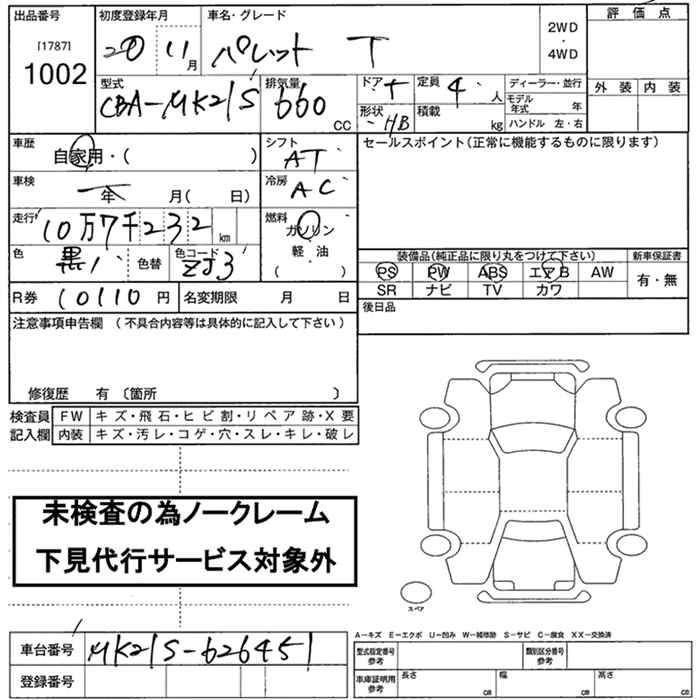 出品番号 初度登録年月 車名・グレード 評価点
[1787] 20 11月 パレット T 2WD ・ 4WD
1002
型式 排気量 ドア 定員 4人 ディーラー・並行 外装 内装
CBA-MK21S 660 CC 形状 HB 積載 kg モデル年式 年
ハンドル 左・右
車歴 自家用・( ) シフト AT セールスポイント(正常に機能するものに限ります)
車検 年 月( 日) 冷房 AC
走行 10万7千232 km 燃料 ガソリン
軽・油
( )
色 黒 色替 色コード ZJ3
装備品(純正品に限り丸をつけて下さい) 新車保証書
PS PW ABS エアB AW 有・無
SR ナビ TV カワ
R券 10110円 名変期限 月 日 後日品
注意事項申告欄 (不具合内容等は具体的に記入して下さい)
修復歴 有 〔箇所 〕
検査員 FW キズ・飛石・ヒビ割・リペア跡・X要
記入欄 内装 キズ・汚レ・コゲ・穴・スレ・キレ・破レ
未検査の為ノークレーム
下見代行サービス対象外
スペア
A-キズ E-エクボ U-凹み W-補修跡 S-サビ C-腐食 XX-交換済
車台番号 MK21S-626451
登録番号
型式指定番号 参考 類別区分番号 参考
車庫証明用 参考 長さ cm 幅 cm 高さ cm